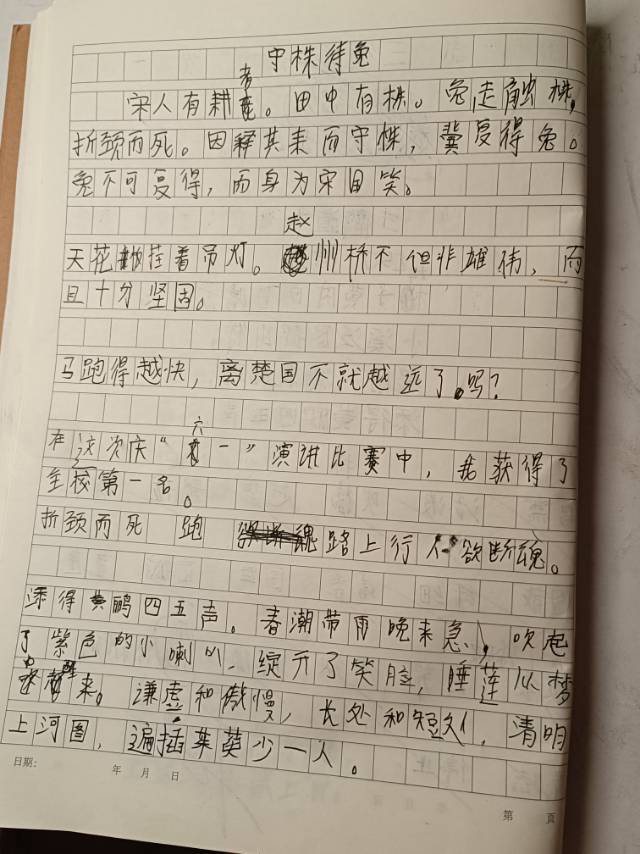 守株待兔
宋人有耕者。田中有株。兔走触株,
折颈而死。因释其耒而守株,冀复得兔。
兔不可复得,而身为宋国笑。
天花挂着吊灯。赵州桥不但非雄伟,而
且十分坚固。
马跑得越快,离楚国不就越远了。吗?
在这次庆“六一”演讲比赛中,我获得了
全校第一名。
折颈而死 跑 路上行人欲断魂。
添得黄鹂四五声。春潮带雨晚来急,吹起
了紫色的小喇叭,绽开了笑脸,睡莲从梦
中醒来。谦虚和傲慢,长处和短处,清明
上河图,遍插茱萸少一人。
日期: 年 月 日
第 頁